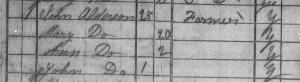 John Alderson 25 Farmer Y
Mary Do 20 Y
Ann Do 2 Y
John Do 1 Y